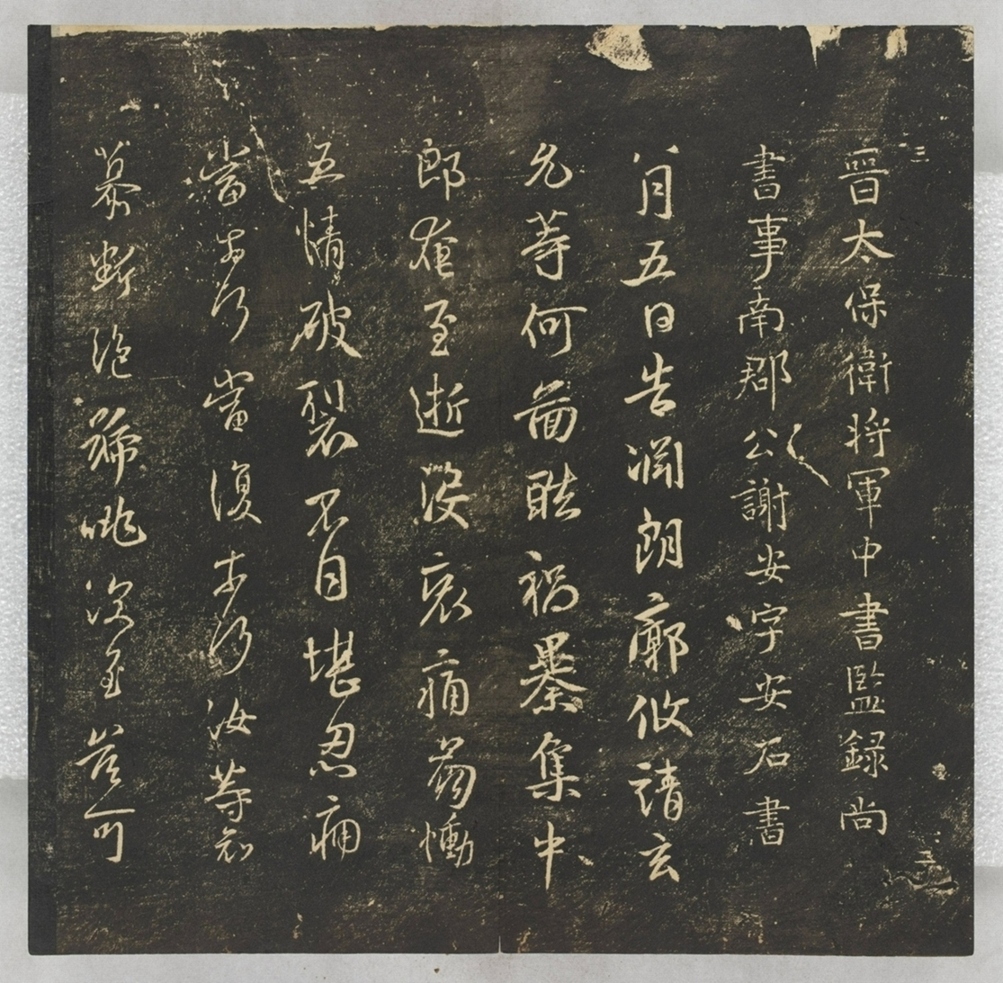 三
晉太保衛將軍中書監録尚
書事南郡公謝安字安石書
八月五日告淵朗廓攸靖玄
允等何圖酷禍暴集中
郎奄至逝沒哀痛崩慟
五情破裂不自堪忍痛
當奈何當復奈何汝等哀
慕斷絕號咷深至豈可